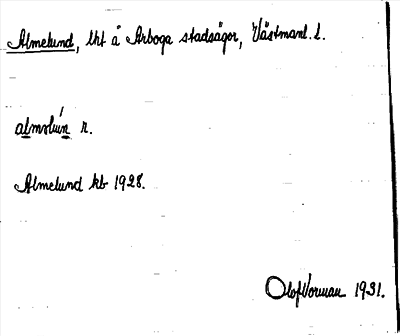 Almelund, lht å Arboga stadsägor, Västmanl. l.
r.
Almelund kb 1928.
Olof Vorman 1931.